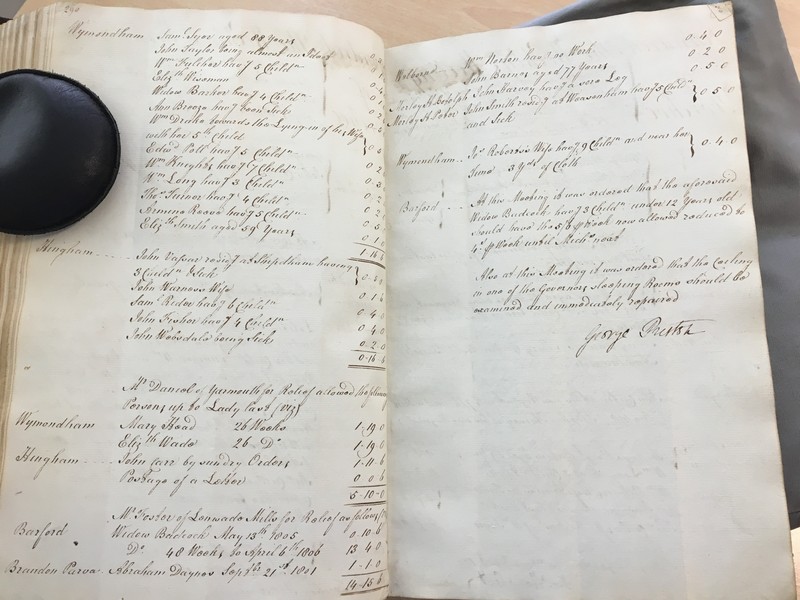 290
Wymondham Saml. Syer aged 88 Years
John Taylor being almost an Idiot
Wm. Fulcher havg. 5 Childn.
Elizth. Wiseman
Widow Barker havg. 4 Childn.
Ann Breeze havg. been Sick
Wm. Drake towards the Lying in of his Wife
with her 5th Child
Edwd. Poll havg. 5 Childn.
Wm. Knights havg. 7 Childn.
Wm. Long havg. 3 Childn.
Thos. Turner havg. 4 Childn.
havg. 5 Childn.
Elizth. Smith aged 59 Years
Hingham John Vassar residg. at Shipdham having
3 Childn. & Sick
John Warnes's Wife
Saml. Rider havg. 6 Childn.
John Fisher havg. 4 Childn.
John being Sick
Mr. Daniel of Yarmouth for Relief allowed the
Persons up to Lady last (viz)
Wymondham Mary Head 26 Weeks 1-19-0
Elizth. Wade 26 Do. 1-19-0
Hingham John Carr by sundry Orders 1-11-6
Postage of a Letter 0 0 6
5-10-0
Mr. Foster of Lenwade Mills for Relief as follows
Barford Widow Badcock May 13th. 1805 0 10 6
Do. 48 Weeks to April 6th. 1806 13 4 0
Brandon Parva Abraham Daynes Septbr. 21st. 1801 1-1-0
14-15-6
Welborne Wm. Norton havg. no Work 0 4 0
John Barnes aged 77 Years 0 2 0
Morley St. Botolph John Harvey havg. a sore Leg 0 5 0
Morley St. Peter John Smith residg. at Weasenham havg. 5 Childn.
and Sick 0 5 0
Wymondham Jos. Roberts's Wife havg. 9 Childn. and near her
Time 3 Yds. of Cloth 0 4 0
Barford At this Meeting it was ordered that the aforesaid
Widow Badcock havg. 3 Childn. under 12 Years old
should have the 5/6 Week now allowed reduced to
4s. Week until Michs. next
Also at this Meeting it was ordered that the Ceiling
in one of the Governors sleeping Rooms should be
examined and immediately repaired
George Preston